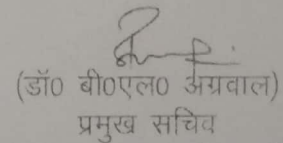 (डॉ0 बी0एल0 अग्रवाल)
प्रमुख सचिव